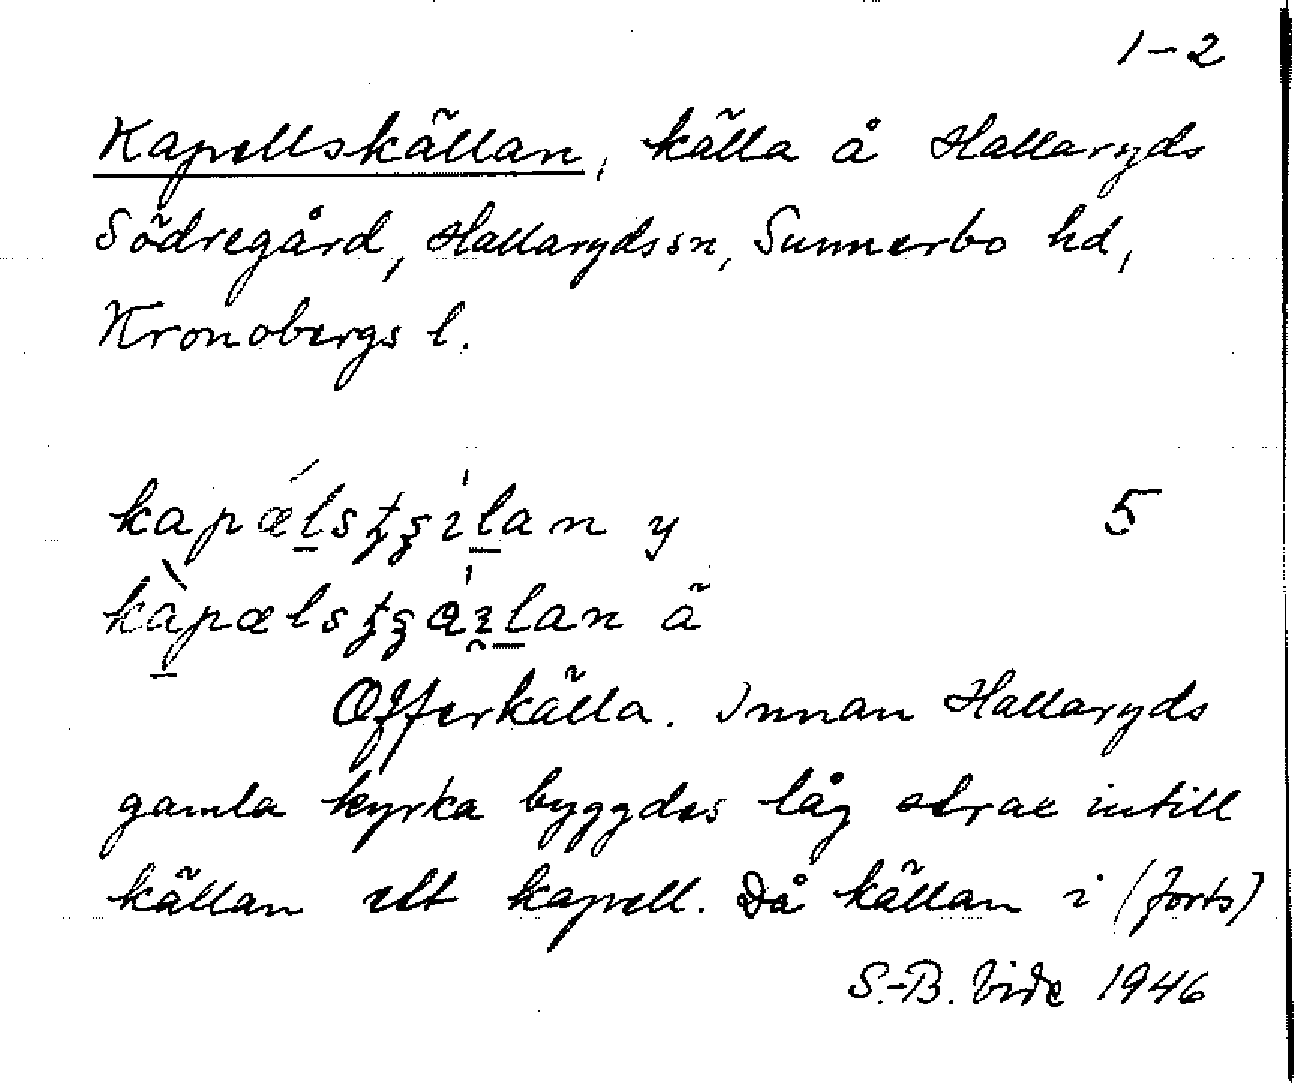 1-2
Kapellskällan, källa å Hallaryds
Södregård, Hallaryds sn, Sunnerbo hd,
Kronobergs l.
y 5
ä
Offerkälla. Innan Hallaryds
gamla kyrka byggdes låg strax intill
källan ett kapell. Då källan i (forts)
S.-B. Vide 1946